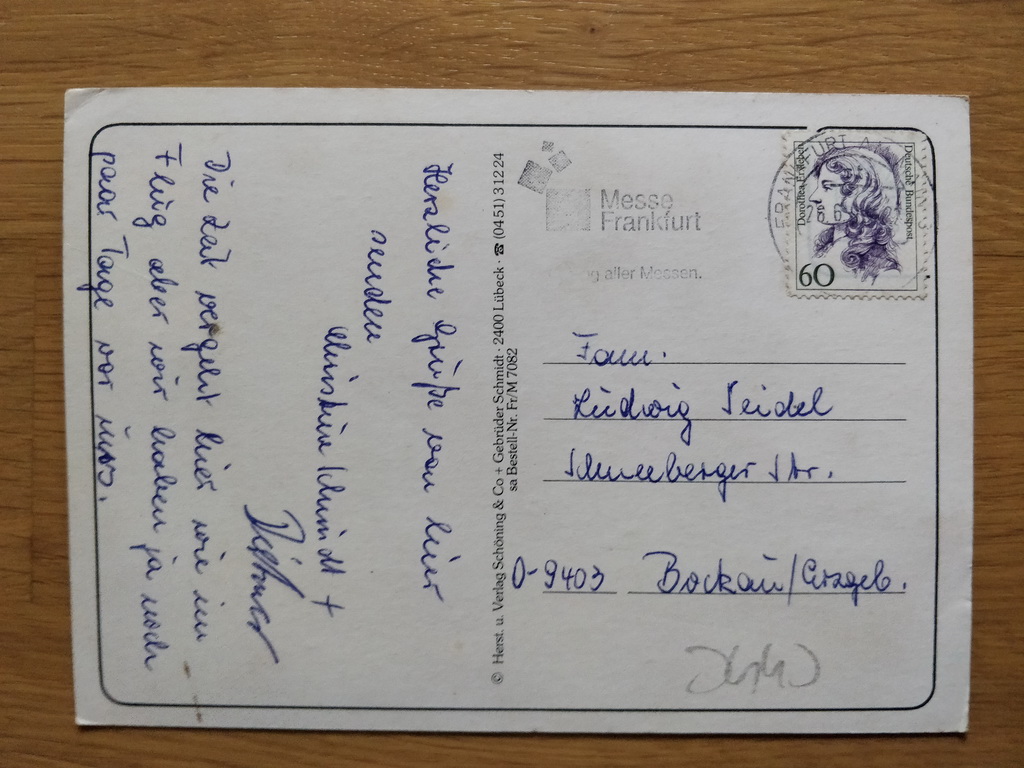 Herzliche Grüße von hier
senden
Christina Schmidt +
Die Zeit vergeht hier wie im
Flug aber wir haben ja noch
paar Tage vor uns.
© Herst. u. Verlag Schöning & Co + Gebrüder Schmidt · 2400 Lübeck · ☎ (04 51) 3 12 24
sa Bestell-Nr. Fr/M 7082
Messe
Frankfurt
aller Messen.
FRANKFURT A
Deutsche Bundespost
Dorothea Erxleben
60
Fam.
Ludwig Seidel
Schneeberger Str.
O-9403 Bockau/Erzgeb.